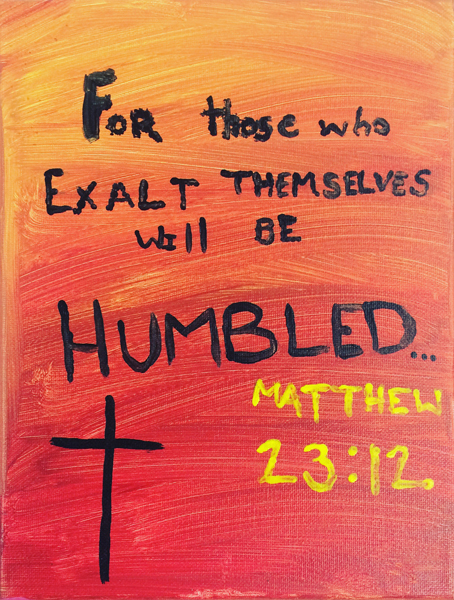 FOR those who
EXALT THEMSELVES
Will BE
HUMBLED...
MATTHEW
23:12.